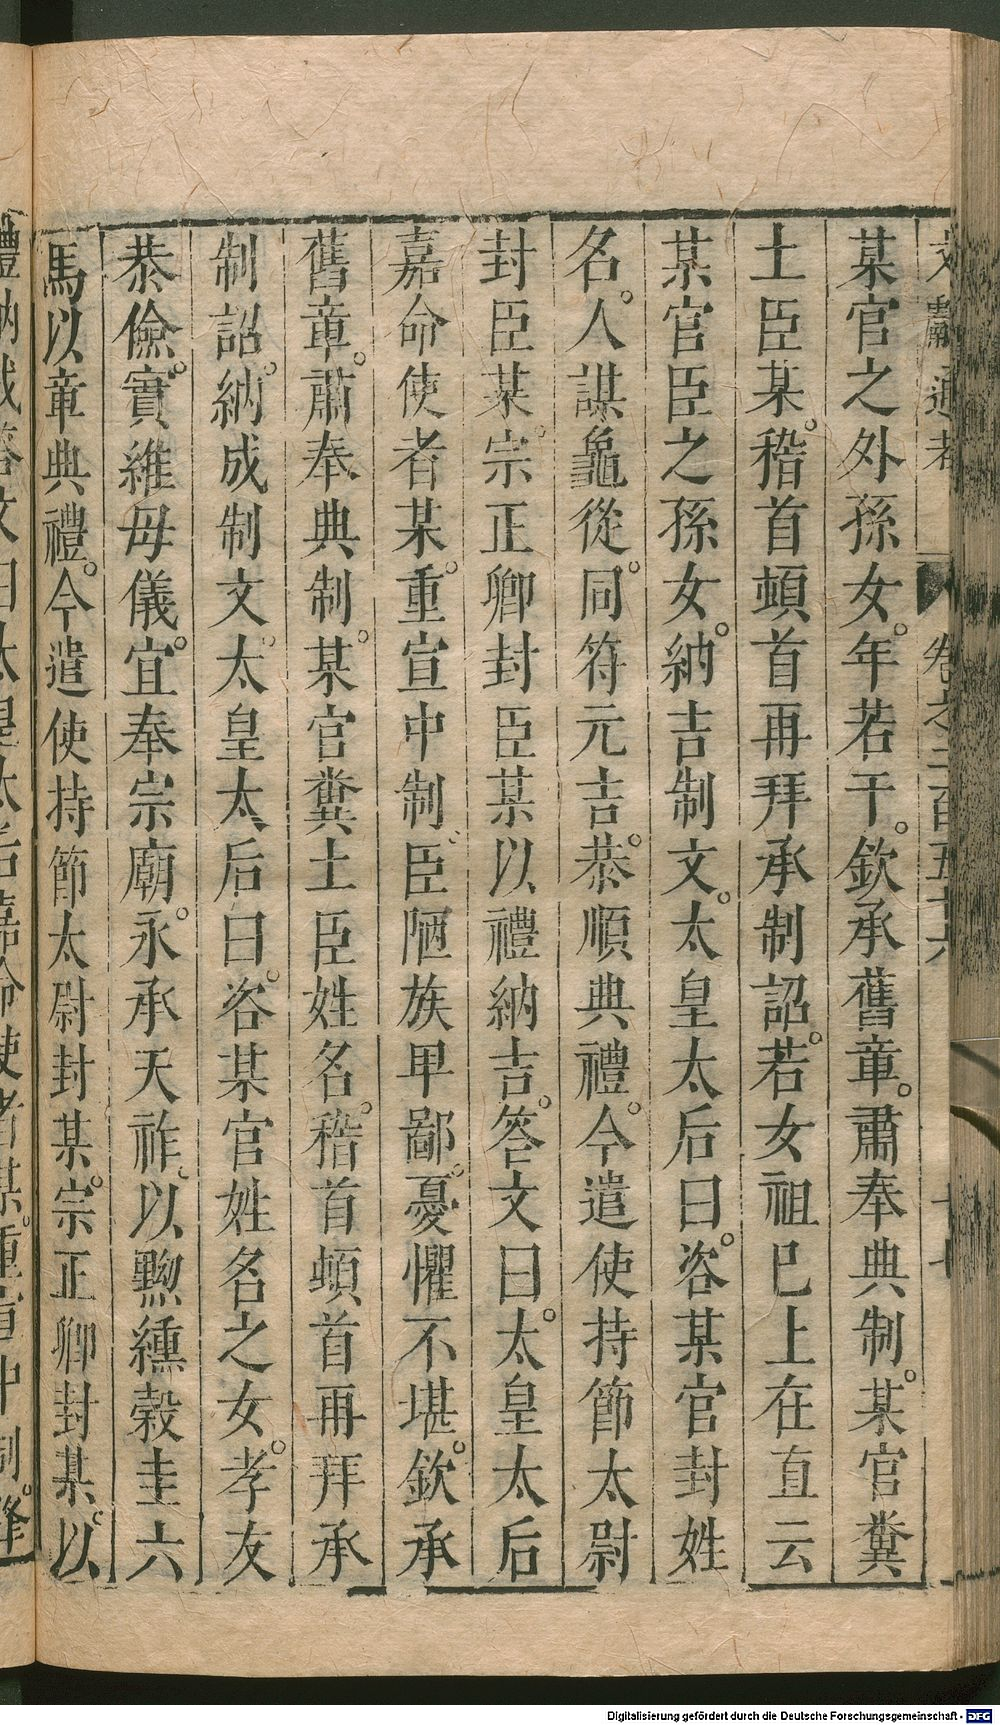 某官之外孫女。年若干。欽承舊章。肅奉典制。某官糞
土臣某。稽首頓首再拜承制詔。若女祖已上在直云
某官臣之孫女。納吉制文。太皇太后曰。咨某官封姓
名。人謀龜從。同符元吉。恭順典禮。今遣使持節太尉
封臣某。宗正卿封臣某以禮納吉。答文曰。太皇太后
嘉命使者某。重宣中制。臣陋族𤰞鄙。憂懼不堪。欽承
舊章。肅奉典制。某官糞土臣姓名。稽首頓首再拜承
制詔。納成制文。太皇太后曰。咨某官姓名之女。孝友
恭儉。實維母儀。宜奉宗廟。永承天祚。以黝纁榖圭六
馬以章典禮。今遣使持節太尉封某。宗正卿封某。以
禮納成答文曰太皇太后嘉命使者某。重宣中制。降
文獻通考 卷之二百五十六 十七
Digitalisierung gefördert durch die Deutsche Forschungsgemeinschaft - DFG